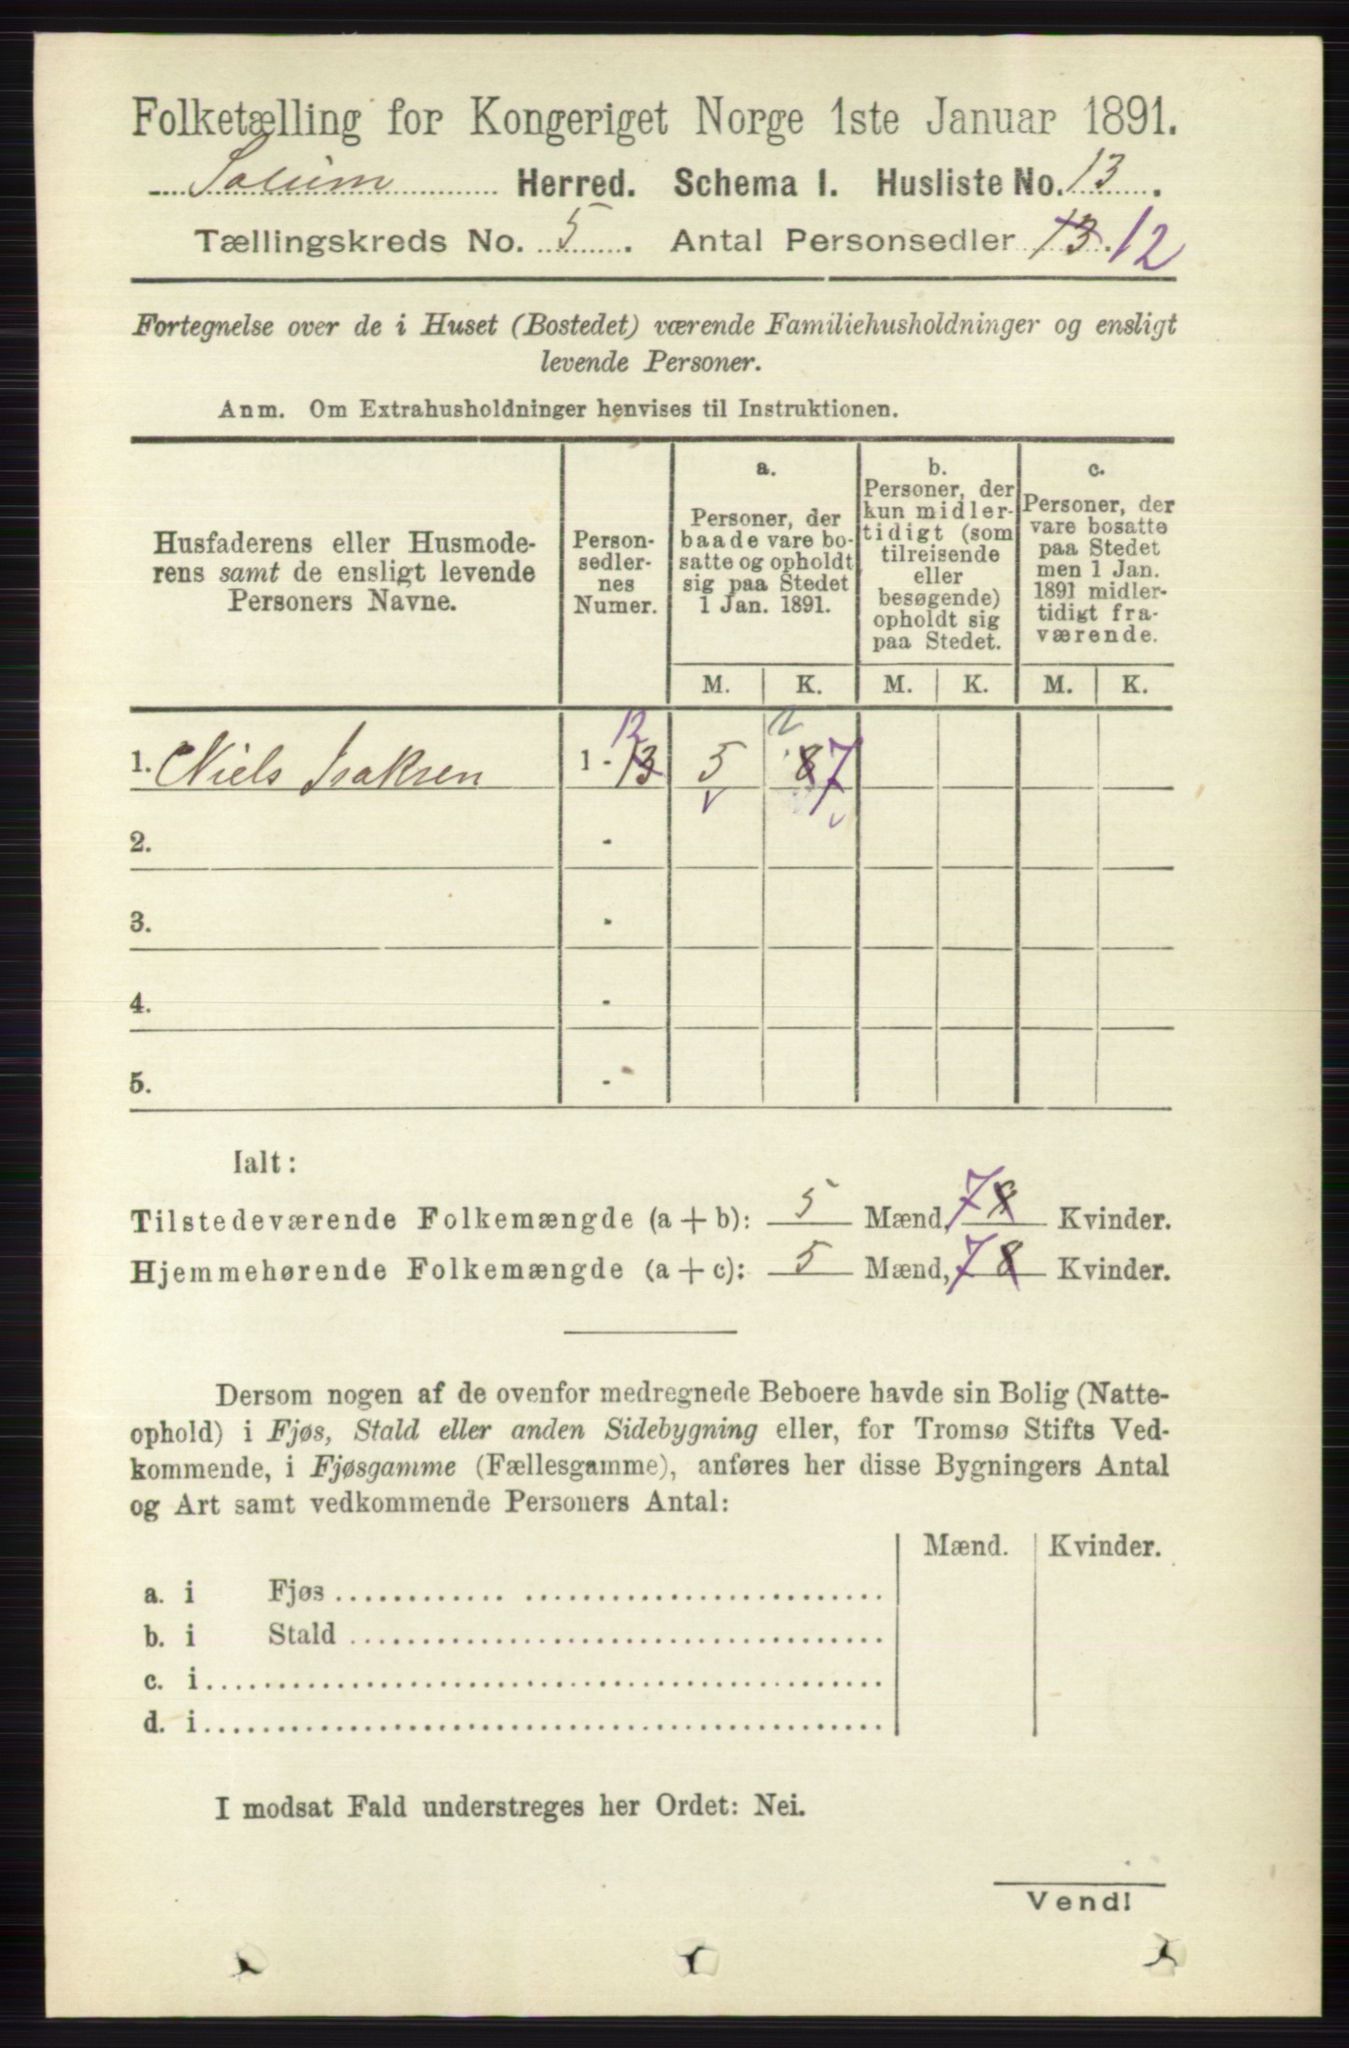 Folketælling for Kongeriget Norge 1ste Januar 1891.
Solum Herred. Schema I. Husliste No. 13.
Tællingskreds No. 5. Antal Personsedler 13. 12
Fortegnelse over de i Huset (Bostedet) værende Familiehusholdninger og ensligt
levende Personer.
Anm. Om Extrahusholdninger henvises til Instruktionen.
Husfaderens eller Husmode-
rens samt de ensligt levende
Personers Navne.
Person-
sedler-
nes
Numer.
a.
Personer, der
baade vare bo-
satte og opholdt
sig paa Stedet
1 Jan. 1891.
b.
Personer, der
kun midler-
tidigt (som
tilreisende
eller
besøgende)
opholdt sig
paa Stedet.
c.
Personer, der
vare bosatte
paa Stedet
men 1 Jan.
1891 midler-
tidigt fra-
værende.
M. K. M. K. M. K.
12
1. Niels Isaksen 1 - 13 5 8 7
2. -
3. -
4. -
5. -
Ialt:
Tilstedeværende Folkemængde (a + b): 5 Mænd, 7 8 Kvinder.
Hjemmehørende Folkemængde (a + c): 5 Mænd, 7 8 Kvinder.
Dersom nogen af de ovenfor medregnede Beboere havde sin Bolig (Natte-
ophold) i Fjøs, Stald eller anden Sidebygning eller, for Tromsø Stifts Ved-
kommende, i Fjøsgamme (Fællesgamme), anføres her disse Bygningers Antal
og Art samt vedkommende Personers Antal:
Mænd. Kvinder.
a. i Fjøs
b. i Stald
c. i
d. i
I modsat Fald understreges her Ordet: Nei.
Vend!